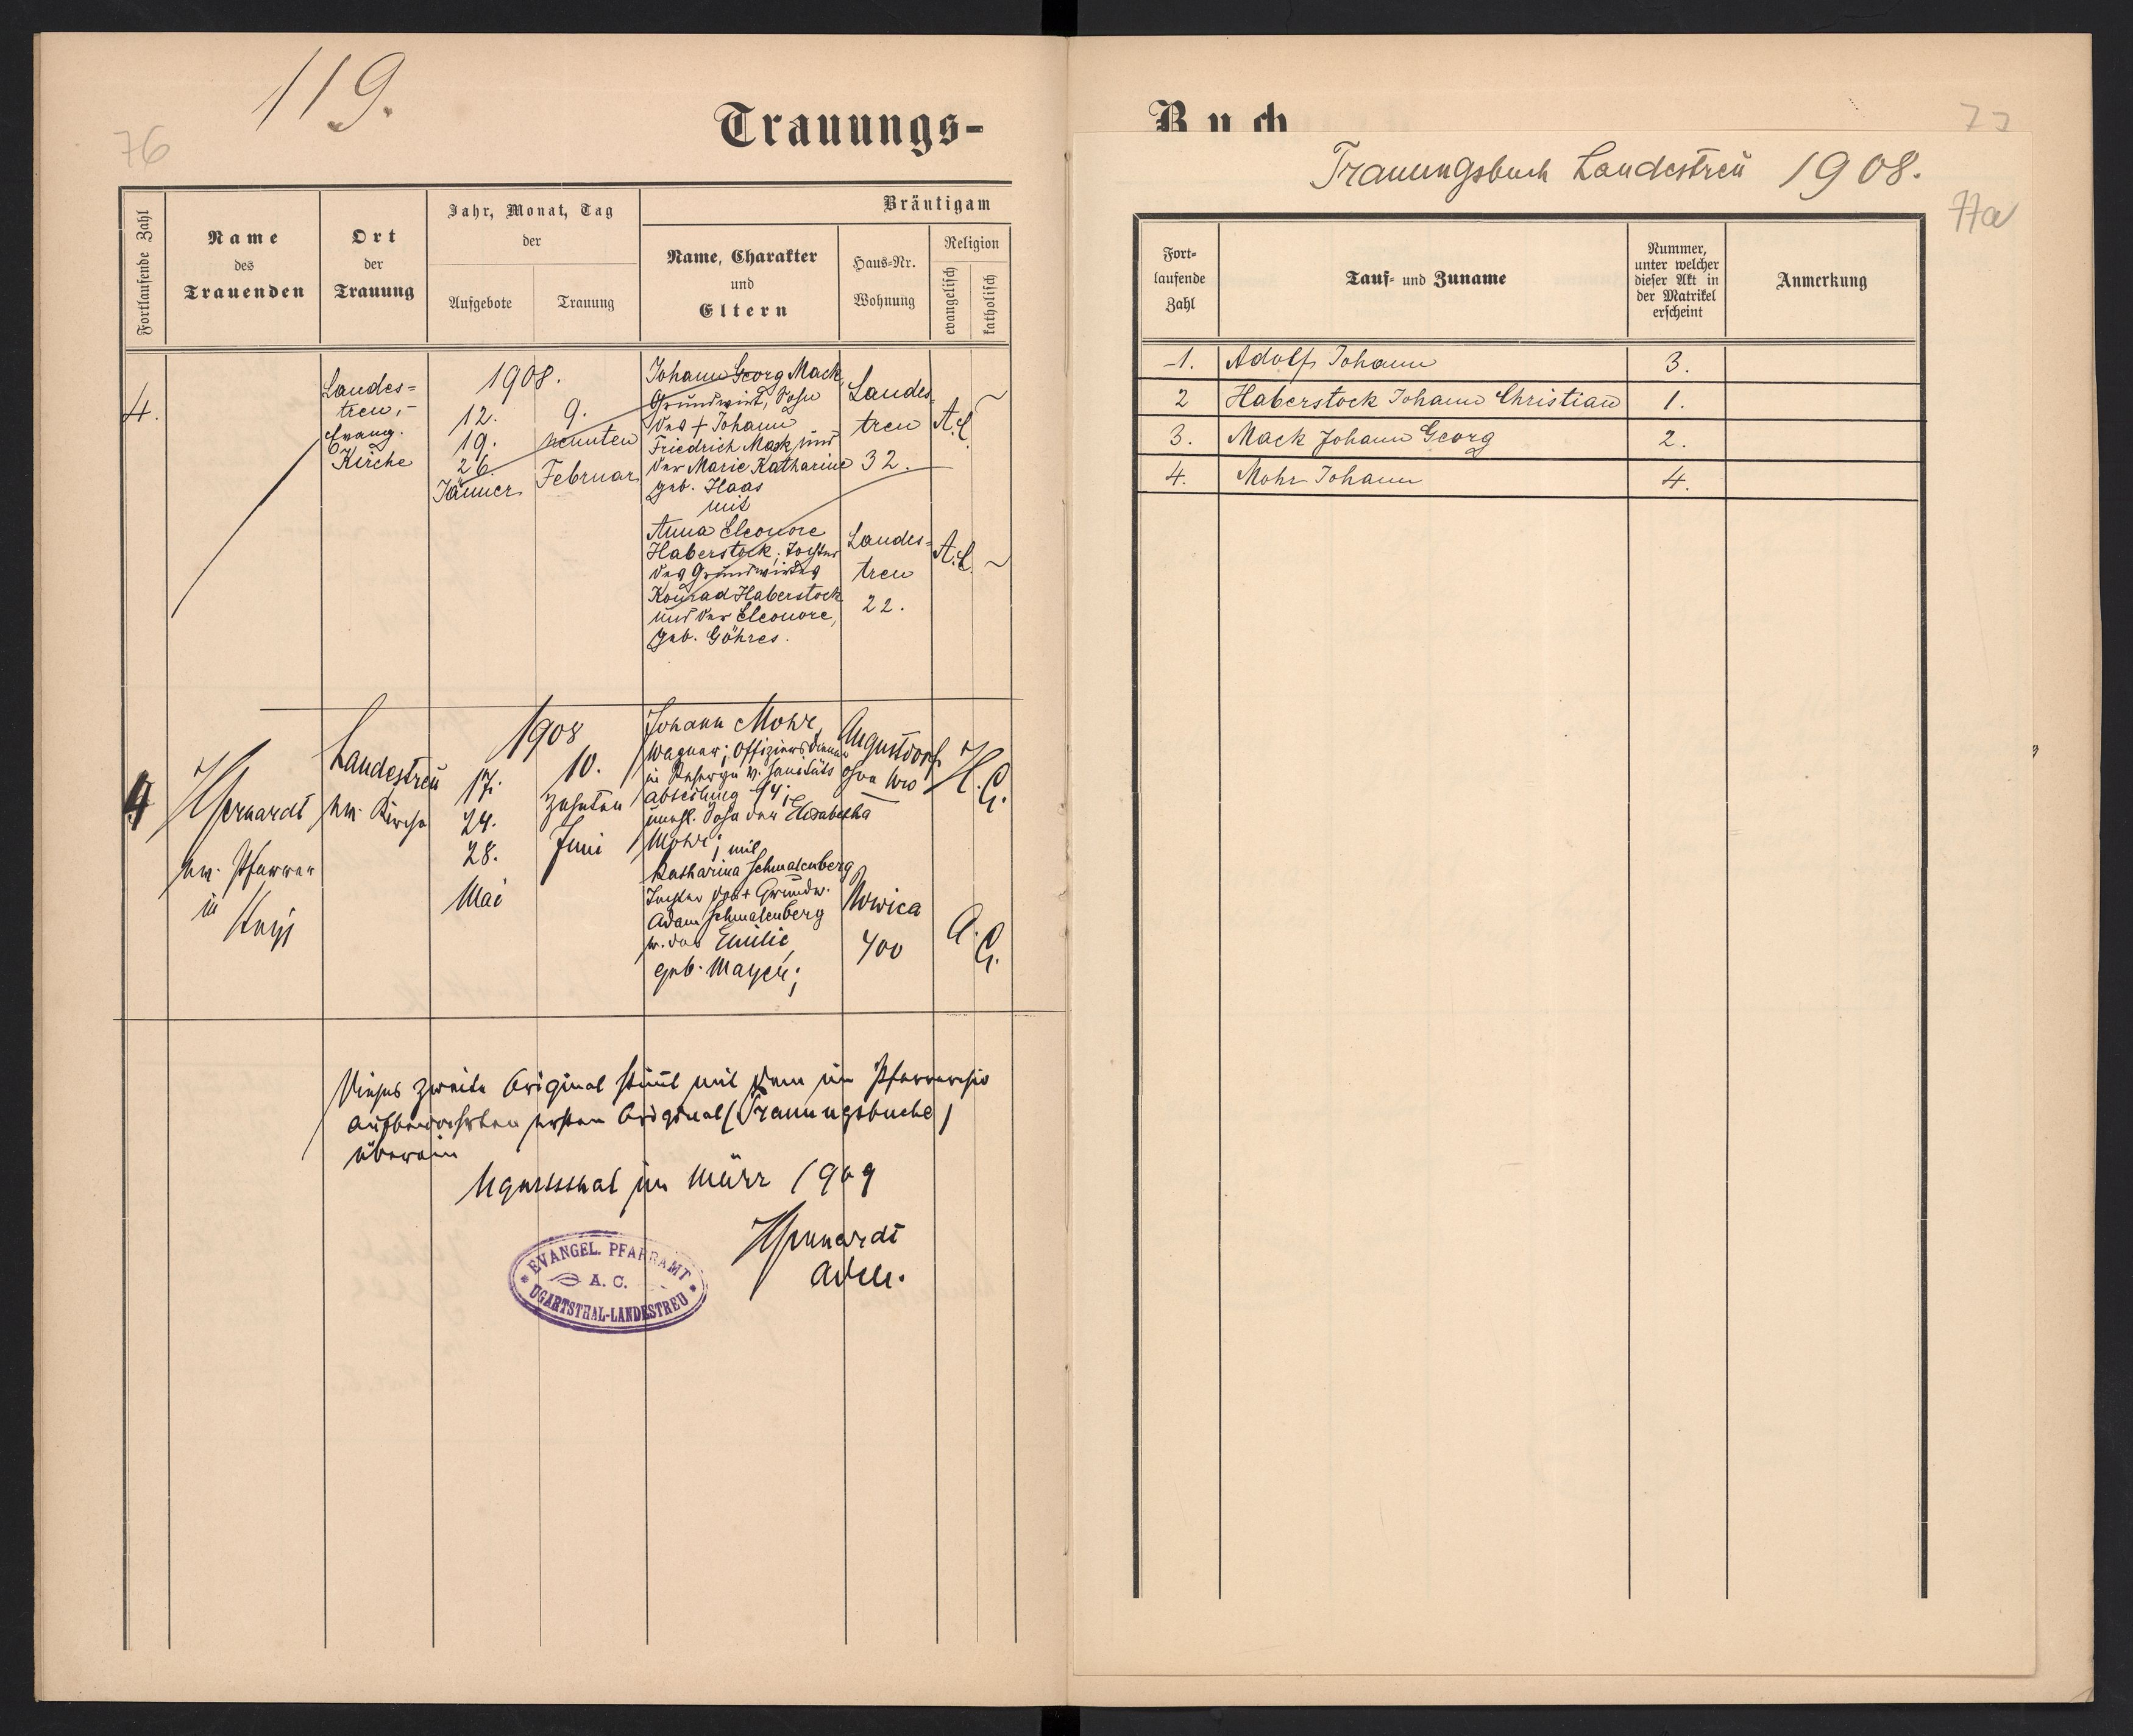 119.
76
Trauungs-
Fortlaufende Zahl
Name
des
Trauenden
Ort
der
Trauung
Jahr, Monat, Tag
der
Aufgebote
Trauung
Bräutigam
Name, Charakter
und
Eltern
Haus-Nr.
Wohnung
Religion
evangelisch
katholisch
4.
Landes-
treu,-
Evang.
Kirche
1908.
12.
19.
26.
Jänner
9.
neunten
Februar
Johann Georg Mack,
Grundwirt, Sohn
des † Johann
Friedrich Mack, und
der Marie Katharine
geb. Haas
mit
Anna Eleonore
Haberstock; Tochter
des Grundwirtes
Konrad Haberstock
und der Eleonore,
geb. Göhres.
Landes-
treu
32.
A.C.
Landes-
treu
22.
A.C.
4
ev. Pfarrer
in
Stryj
Landestreu
ev. Kirche
1908
17.
24.
28.
Mai
10.
zehnten
Juni
Johann Mohr,
Wagner; Offiziersdiener
in Reserve d. Sanitäts
abteilung 14;
unehl. Sohn der Elisabetha
Mohr; mit
Katharina Schmalenberg
Tochter des † Grundw.
Adam Schmalenberg
u. der Emilie,
geb. Mayer;
Augustdorf
ohne Nro
H. C.
Nowica
400
A. C.
Dieses zweite Original stimmt mit dem im Pfarrarchiv
aufbewahrten ersten Original (Trauungsbuche)
überein
Ugartsthal im März 1909
EVANGEL. PFARRAMT
A. C.
UGARTSTHAL-LANDESTREU
Buch
77
Trauungsbuch Landestreu 1908.
77a
Fort-
laufende
Zahl
Tauf- und Zuname
Nummer,
unter welcher
dieser Akt in
der Matrikel
erscheint
Anmerkung
1. Adolf Johann 3.
2 Haberstock Johann Christian 1.
3. Mack Johann Georg 2.
4. Mohr Johann 4.